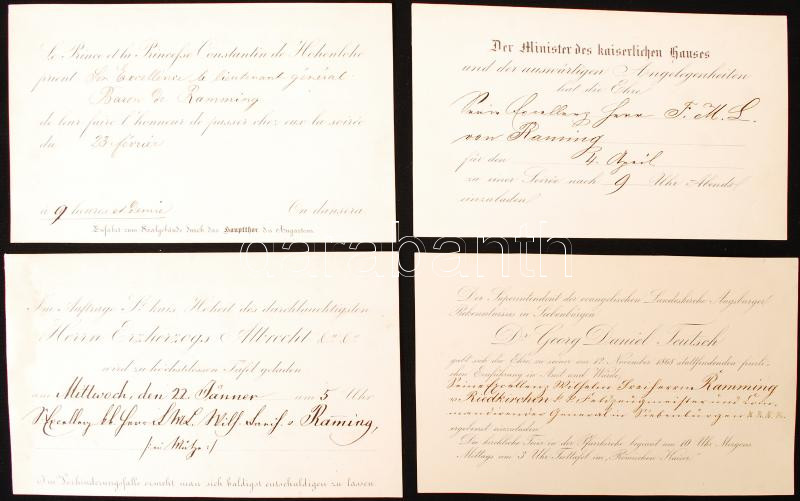 Le Prince et la Princesse Constantin de Hohenlohe
prient Son Excellence le lieutenant général
Baron de Ramming
de leur faire l'honneur de passer chez eux la soirée
du 23 février
à 9 heures et demie On dansera
Einfahrt zum Saalgebäude durch das Hauptthor des Augartens.
Der Minister des kaiserlichen Hauses
und der auswärtigen Angelegenheiten
hat die Ehre
Seine Excellenz Herrn F. M. L.
von Raming
für den 4. April
zu einer Soirée nach 9 Uhr Abends
einzuladen
Im Auftrage Sr kais. Hoheit des durchlauchtigsten
Herrn Erzherzogs Albrecht &c &c
wird zur höchstdessen Tafel geladen
am Mittwoch, den 22. Jänner um 5 Uhr
Se Excellenz Herr v. Ramming,
Im Verhinderungsfalle ersucht man sich baldigst entschuldigen zu lassen
Der Superintendent der evangelischen Landeskirche Augsburger
Bekenntnisses in Siebenbürgen
Dr Georg Daniel Teutsch
gibt sich die Ehre zu seiner am 12. November 1868 stattfindenden feierlichen
Einführung in Amt und Würde
Seine Excellenz Wilhelm Freiherrn Ramming
v. Riedkirchen k. k. Feldzeugmeister und Com-
mandirender General in Siebenbürgen &. &. &.
ergebenst einzuladen
Die kirchliche Feier in der Pfarrkirche beginnt um 10 Uhr Morgens
Mittags um 3 Uhr Festtafel im "Römischen Kaiser"
darabanth